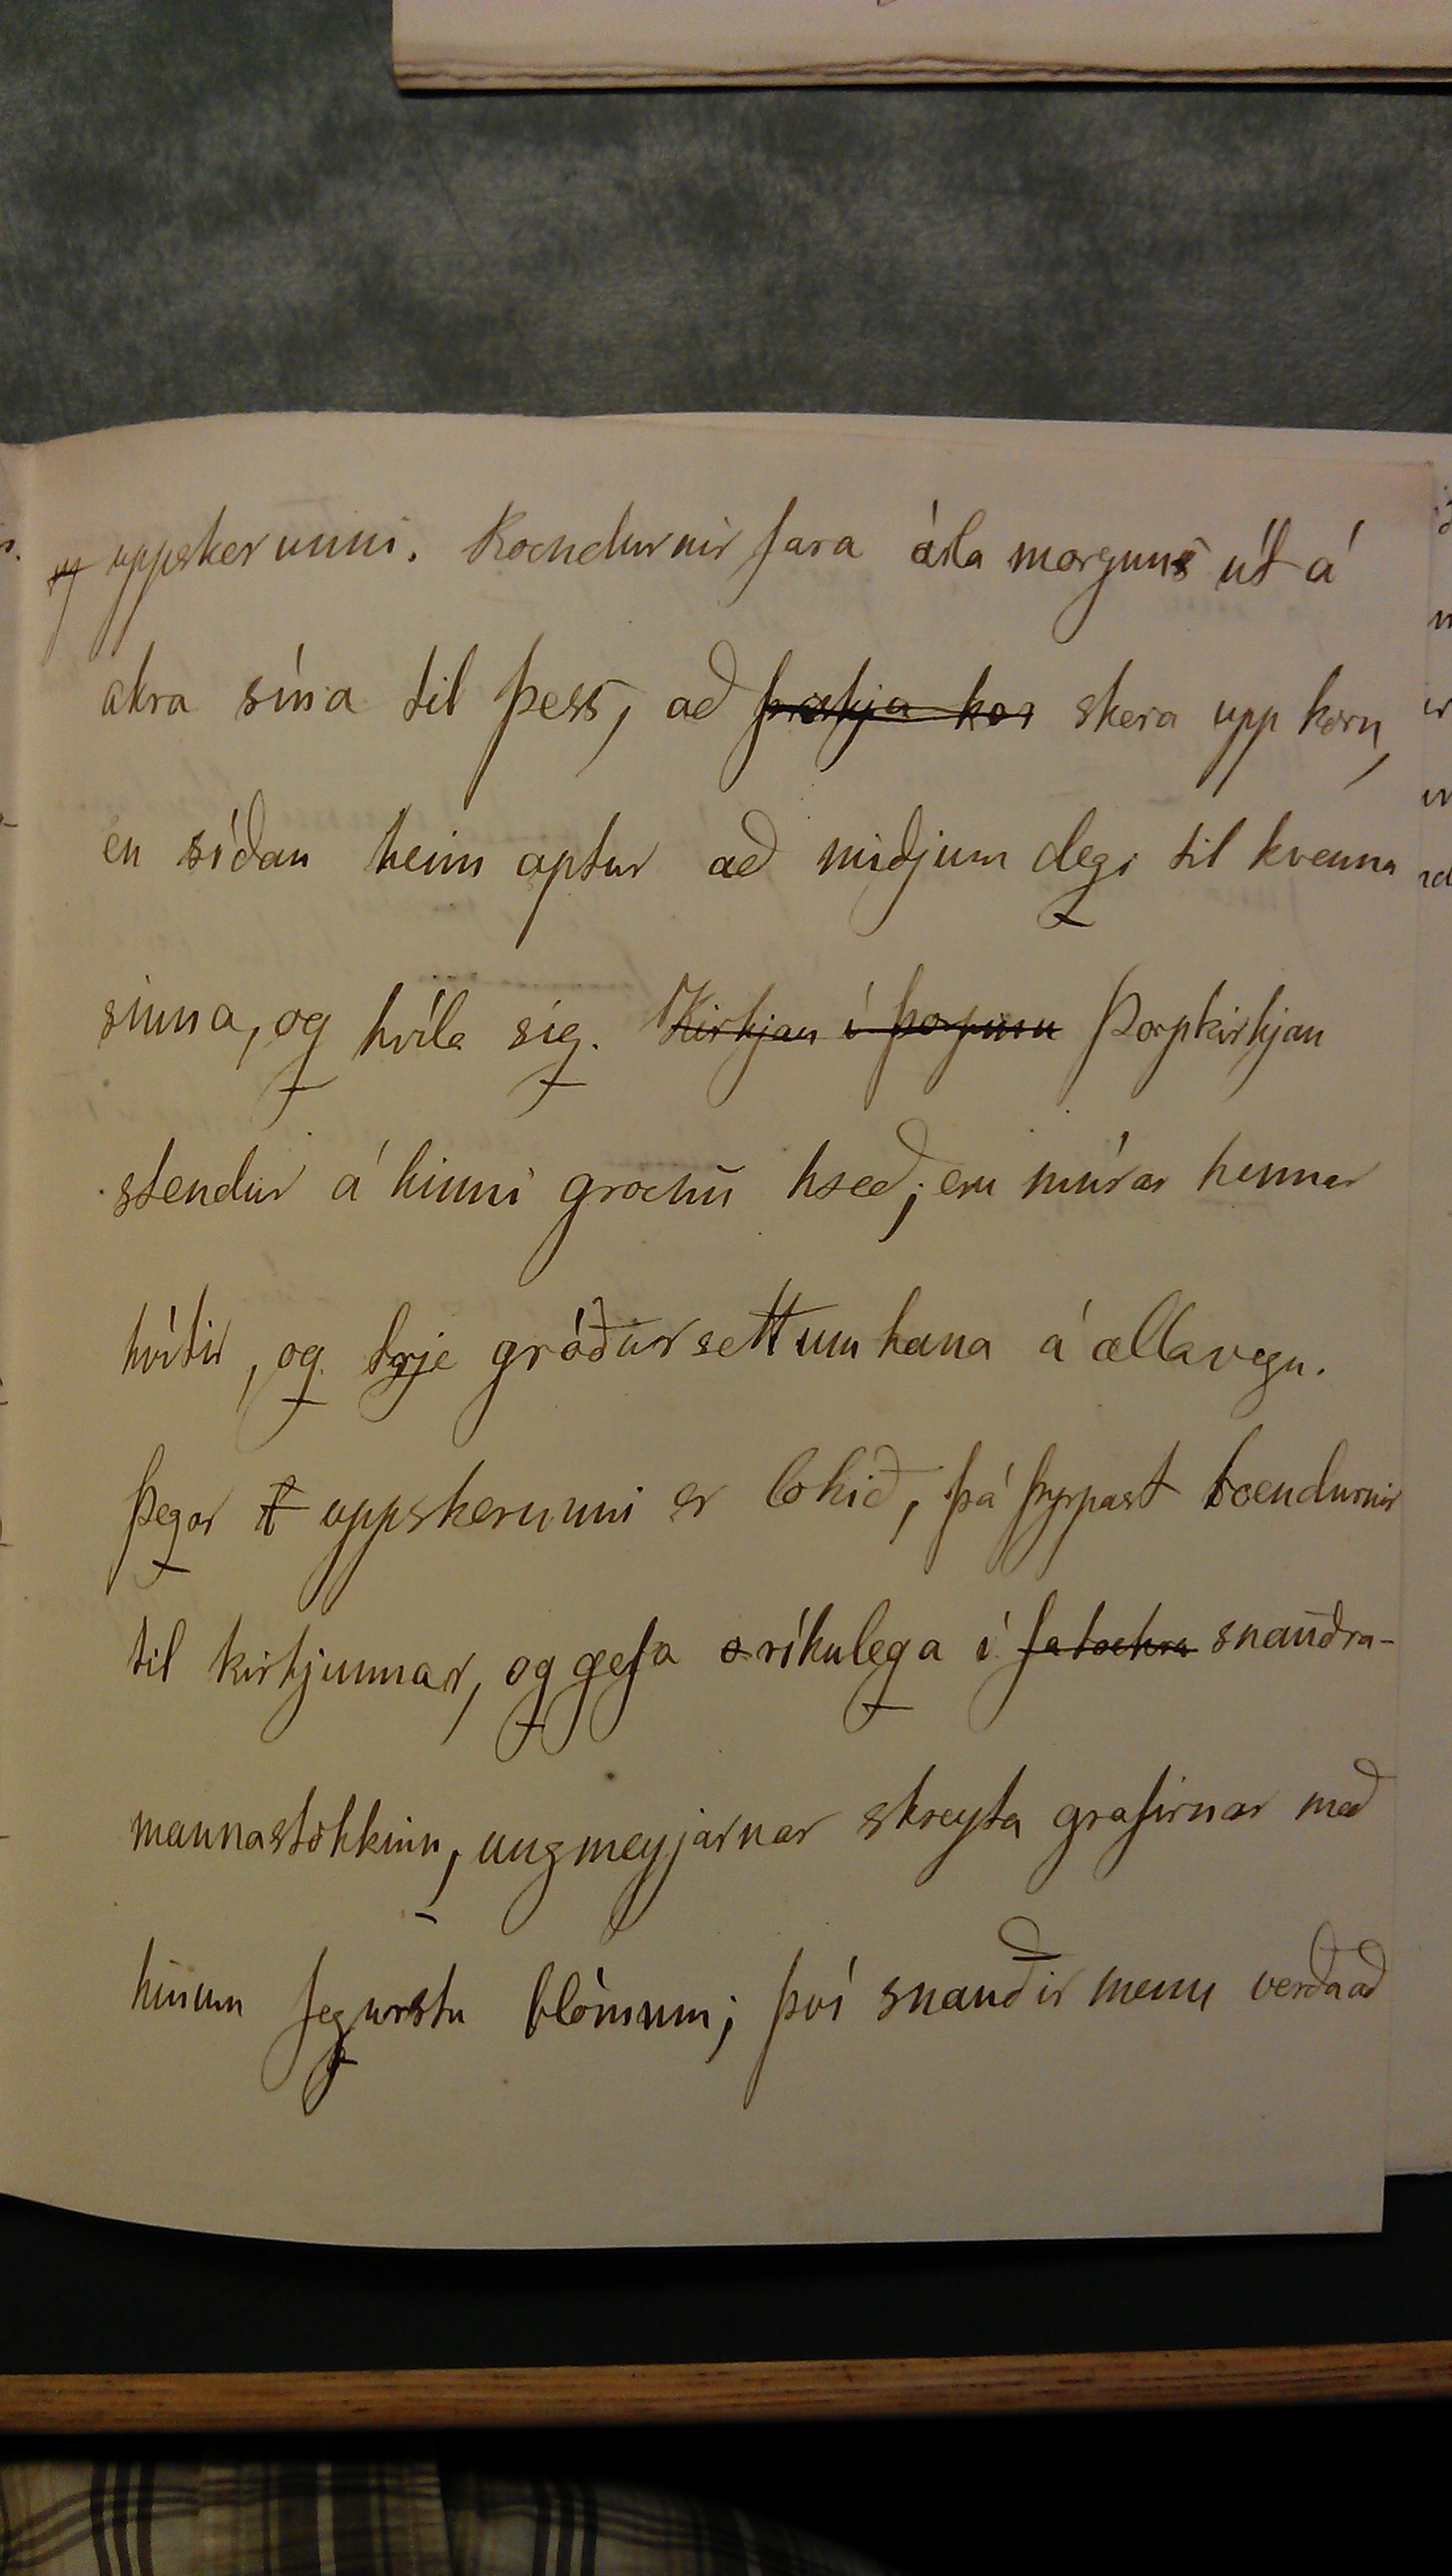 uppskerunni. Bœndurnir fara árla morguns út á
akra sína til þess, að þreskja kor skera upp korn,
en síðan heim aptur að miðjum degi til kvenna
sinna, og hvíla sig. Kirkjan í þorpinu Þorpkirkjan
stendur á hinni grœnu hæð; eru múrar hennar
hvítir, og trje gróðursett um hana á alla vegu.
Þegar t uppskerunni er lokið, þá þyrpast bœndurnir
til kirkjunnar, og gefa o ríkulega í fatœkra snauðra-
mannastokkinn, ungmeyjarnar skreyta grafirnar með
hinum fegurstu blómum; því snauðir menn verða að